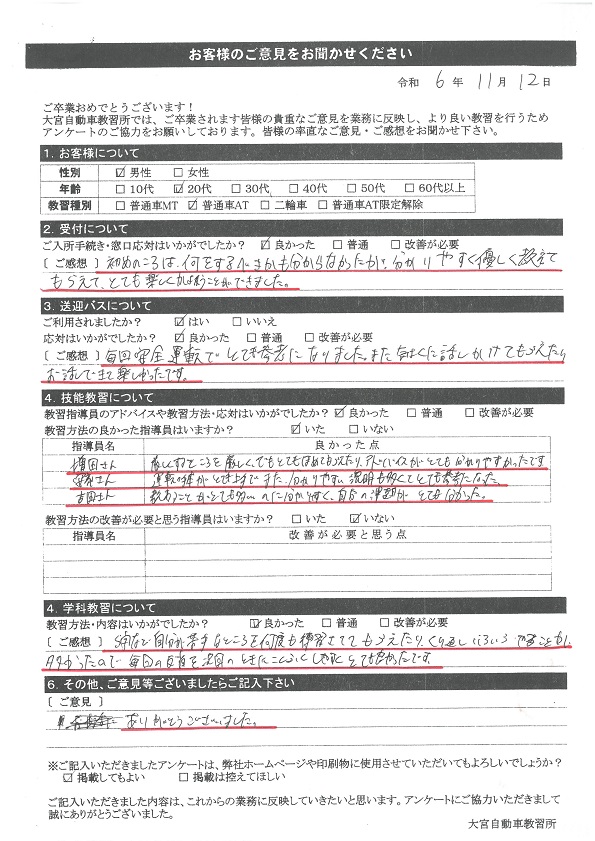 お客様のご意見をお聞かせください
令和 6 年 11 月 12 日
ご卒業おめでとうございます！
大宮自動車教習所では、ご卒業されます皆様の貴重なご意見を業務に反映し、より良い教習を行うため
アンケートのご協力をお願いしております。皆様の率直なご意見・ご感想をお聞かせ下さい。
1. お客様について
性別 ☑男性 □女性
年齢 □10代 ☑20代 □30代 □40代 □50代 □60代以上
教習種別 □普通車MT ☑普通車AT □二輪車 □普通車AT限定解除
2. 受付について
ご入所手続き・窓口応対はいかがでしたか？ ☑良かった □普通 □改善が必要
〔ご感想〕初めのころは、何をするべきかも分からなかたが、分かりやすく優しく教えて
もらえて、とても楽しくかようことができました。
3. 送迎バスについて
ご利用されましたか？ ☑はい □いいえ
応対はいかがでしたか？ ☑良かった □普通 □改善が必要
〔ご感想〕毎回安全運転でとても参考になりました。また気さくに話しかけてもらえたり
お話しできて楽しかったです。
4. 技能教習について
教習指導員のアドバイスや教習方法・応対はいかがでしたか？ ☑良かった □普通 □改善が必要
教習方法の良かった指導員はいますか？ ☑いた □いない
指導員名 良かった点
増田さん 厳しくするところを厳しくでもとてもほめてもらえたり、アドバイスがとても分かりやすかったです
さん 運転の がとても上手でまた分かりやすい説明も多くてとても参考になった。
吉田さん 教えることがとても 分かりやすく、自分の とても かった。
教習方法の改善が必要と思う指導員はいますか？ □いた ☑いない
指導員名 改善が必要と思う点
4. 学科教習について
教習方法・内容はいかがでしたか？ ☑良かった □普通 □改善が必要
〔ご感想〕 などで自分が苦手なところを何度も練習させてもらえたり、くり返しいろいろやることも
多かったので毎回の反省を次回のときに とても良かったです。
6. その他、ご意見等ございましたらご記入下さい
〔ご意見〕
ありがとうございました。
※ご記入いただきましたアンケートは、弊社ホームページや印刷物に使用させていただいてもよろしいでしょうか？
☑掲載してもよい □掲載は控えてほしい
ご記入いただきました内容は、これからの業務に反映していきたいと思います。アンケートにご協力いただきまして
誠にありがとうございました。
大宮自動車教習所